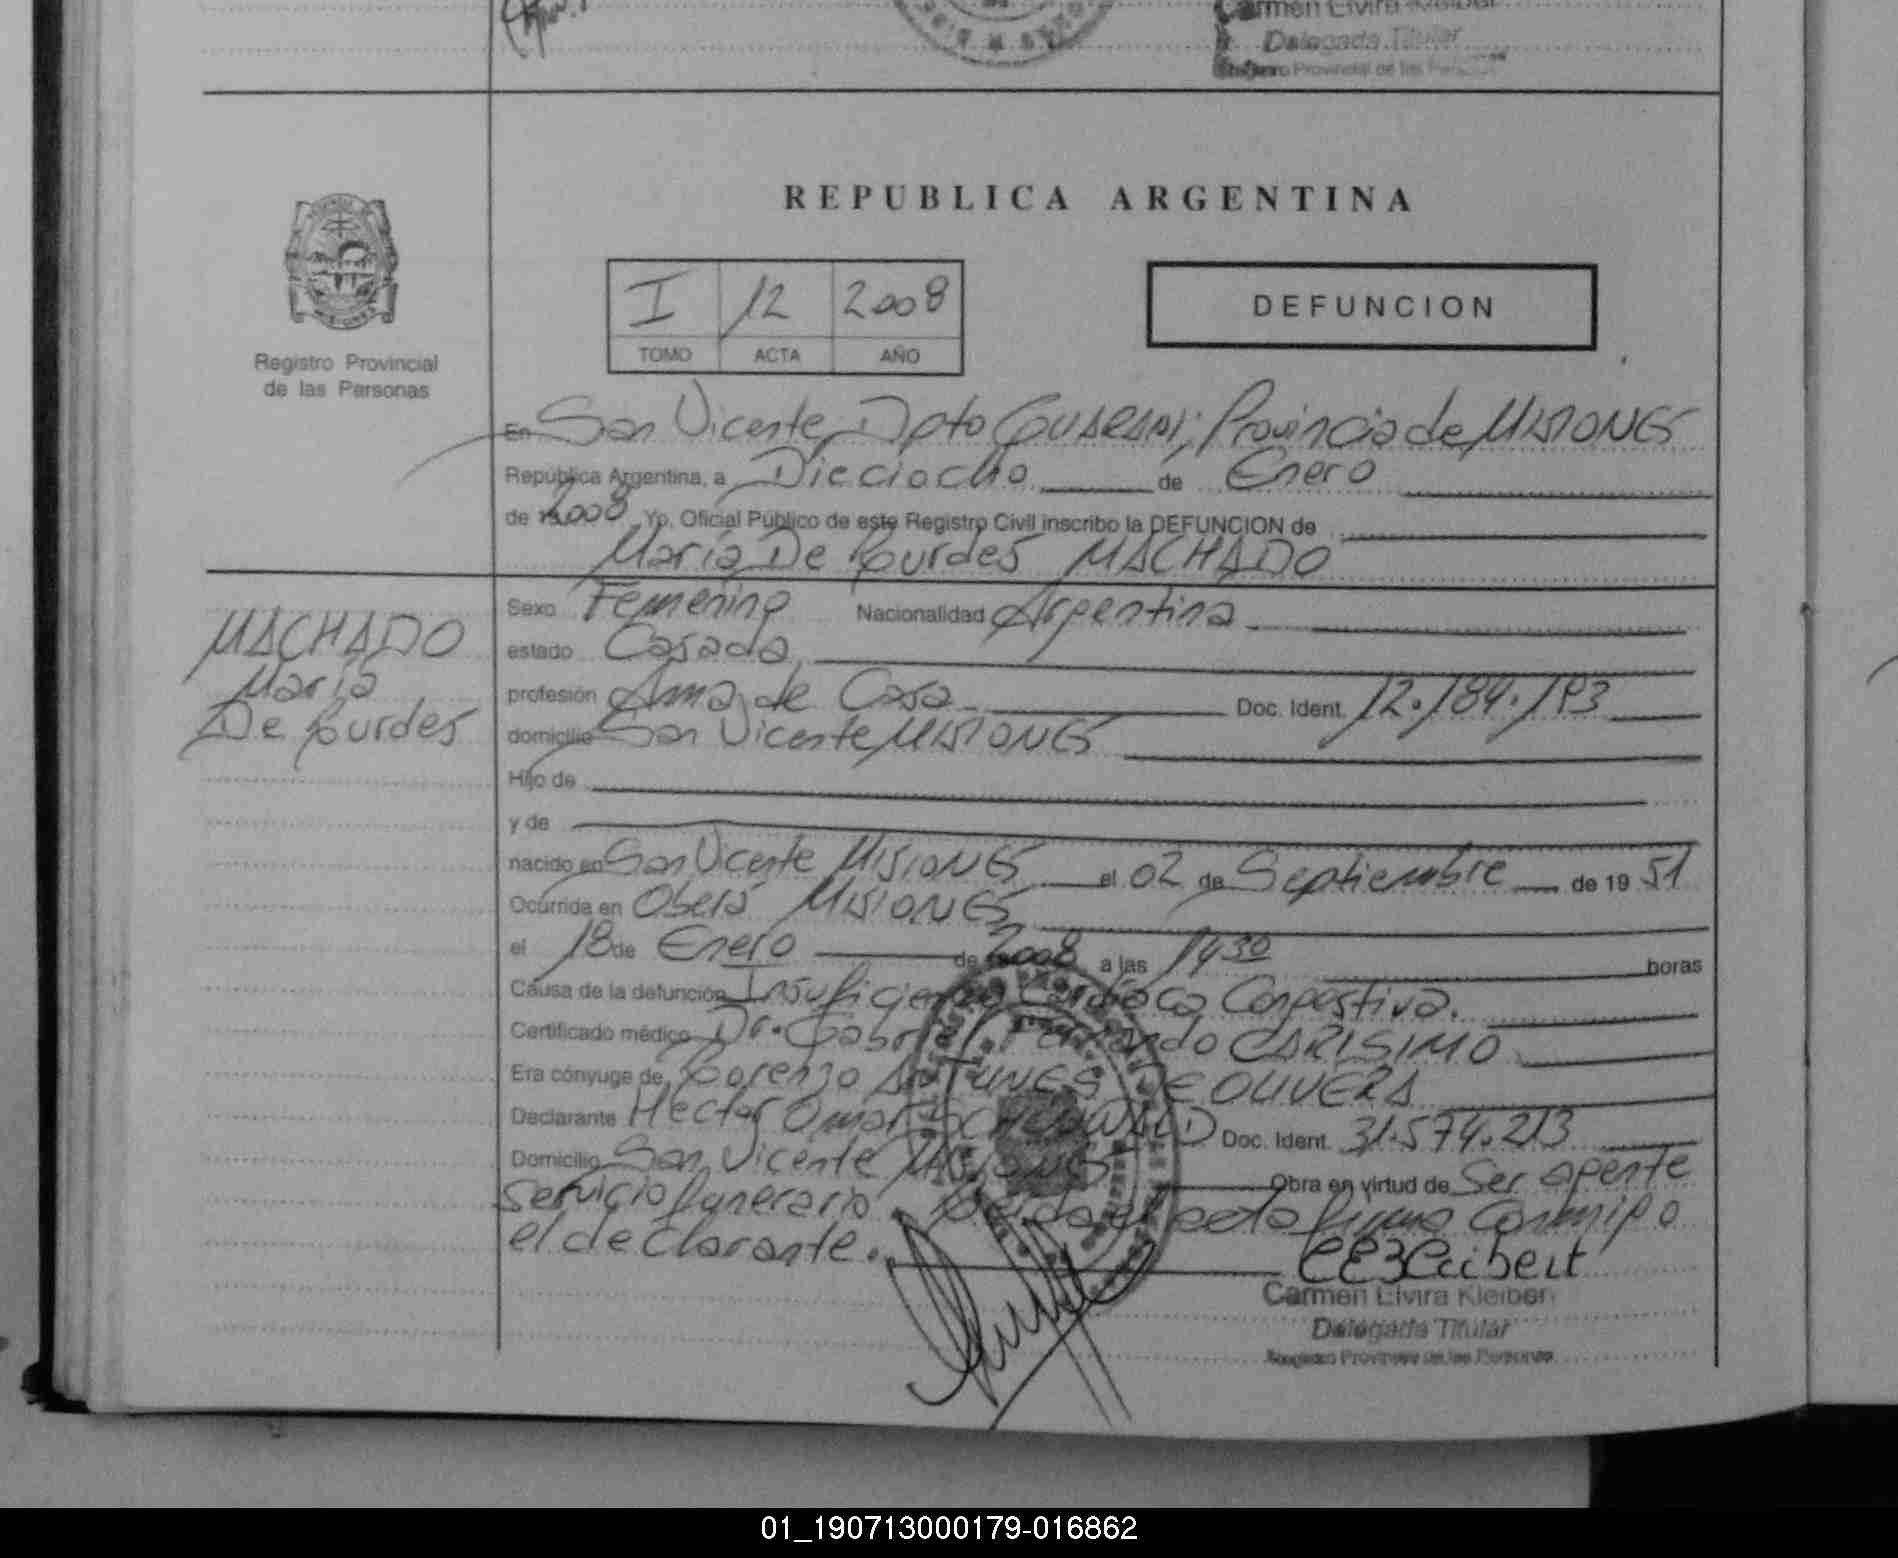 Carmen Elvira Kleiber
Delegada Titular
Registro Provincial de las Personas
REPUBLICA ARGENTINA
I 12 2008
TOMO ACTA AÑO
DEFUNCION
Registro Provincial
de las Personas
En San Vicente, Dpto GUARANI; Provincia de MISIONES
República Argentina, a Dieciocho de Enero
de 2008 Yo, Oficial Público de este Registro Civil inscribo la DEFUNCION de
María De Lourdes MACHADO
MACHADO
María
De Lourdes
Sexo Femenino Nacionalidad Argentina
estado Casada
profesión Ama de Casa Doc. Ident. 12.184.193
domicilio San Vicente MISIONES
Hijo de
y de
nacido en San Vicente MISIONES el 02 de Septiembre de 19 51
Ocurrida en Oberá MISIONES
el 18 de Enero de 2008 a las 14 30 horas
Causa de la defunción Insuficiencia Cardíaca Congestiva.
Certificado médico Dr. Gabriel Fernando CARISIMO
Era cónyuge de Lorenzo ANTUNES DE OLIVERA
Declarante Hector Omar Doc. Ident. 31.574.213
Domicilio San Vicente MISIONES Obra en virtud de Ser agente
servicio funerario. Leida el acta firma conmigo
el declarante.
Carmen Elvira Kleiber
Delegada Titular
Registro Provincial de las Personas
01_190713000179-016862